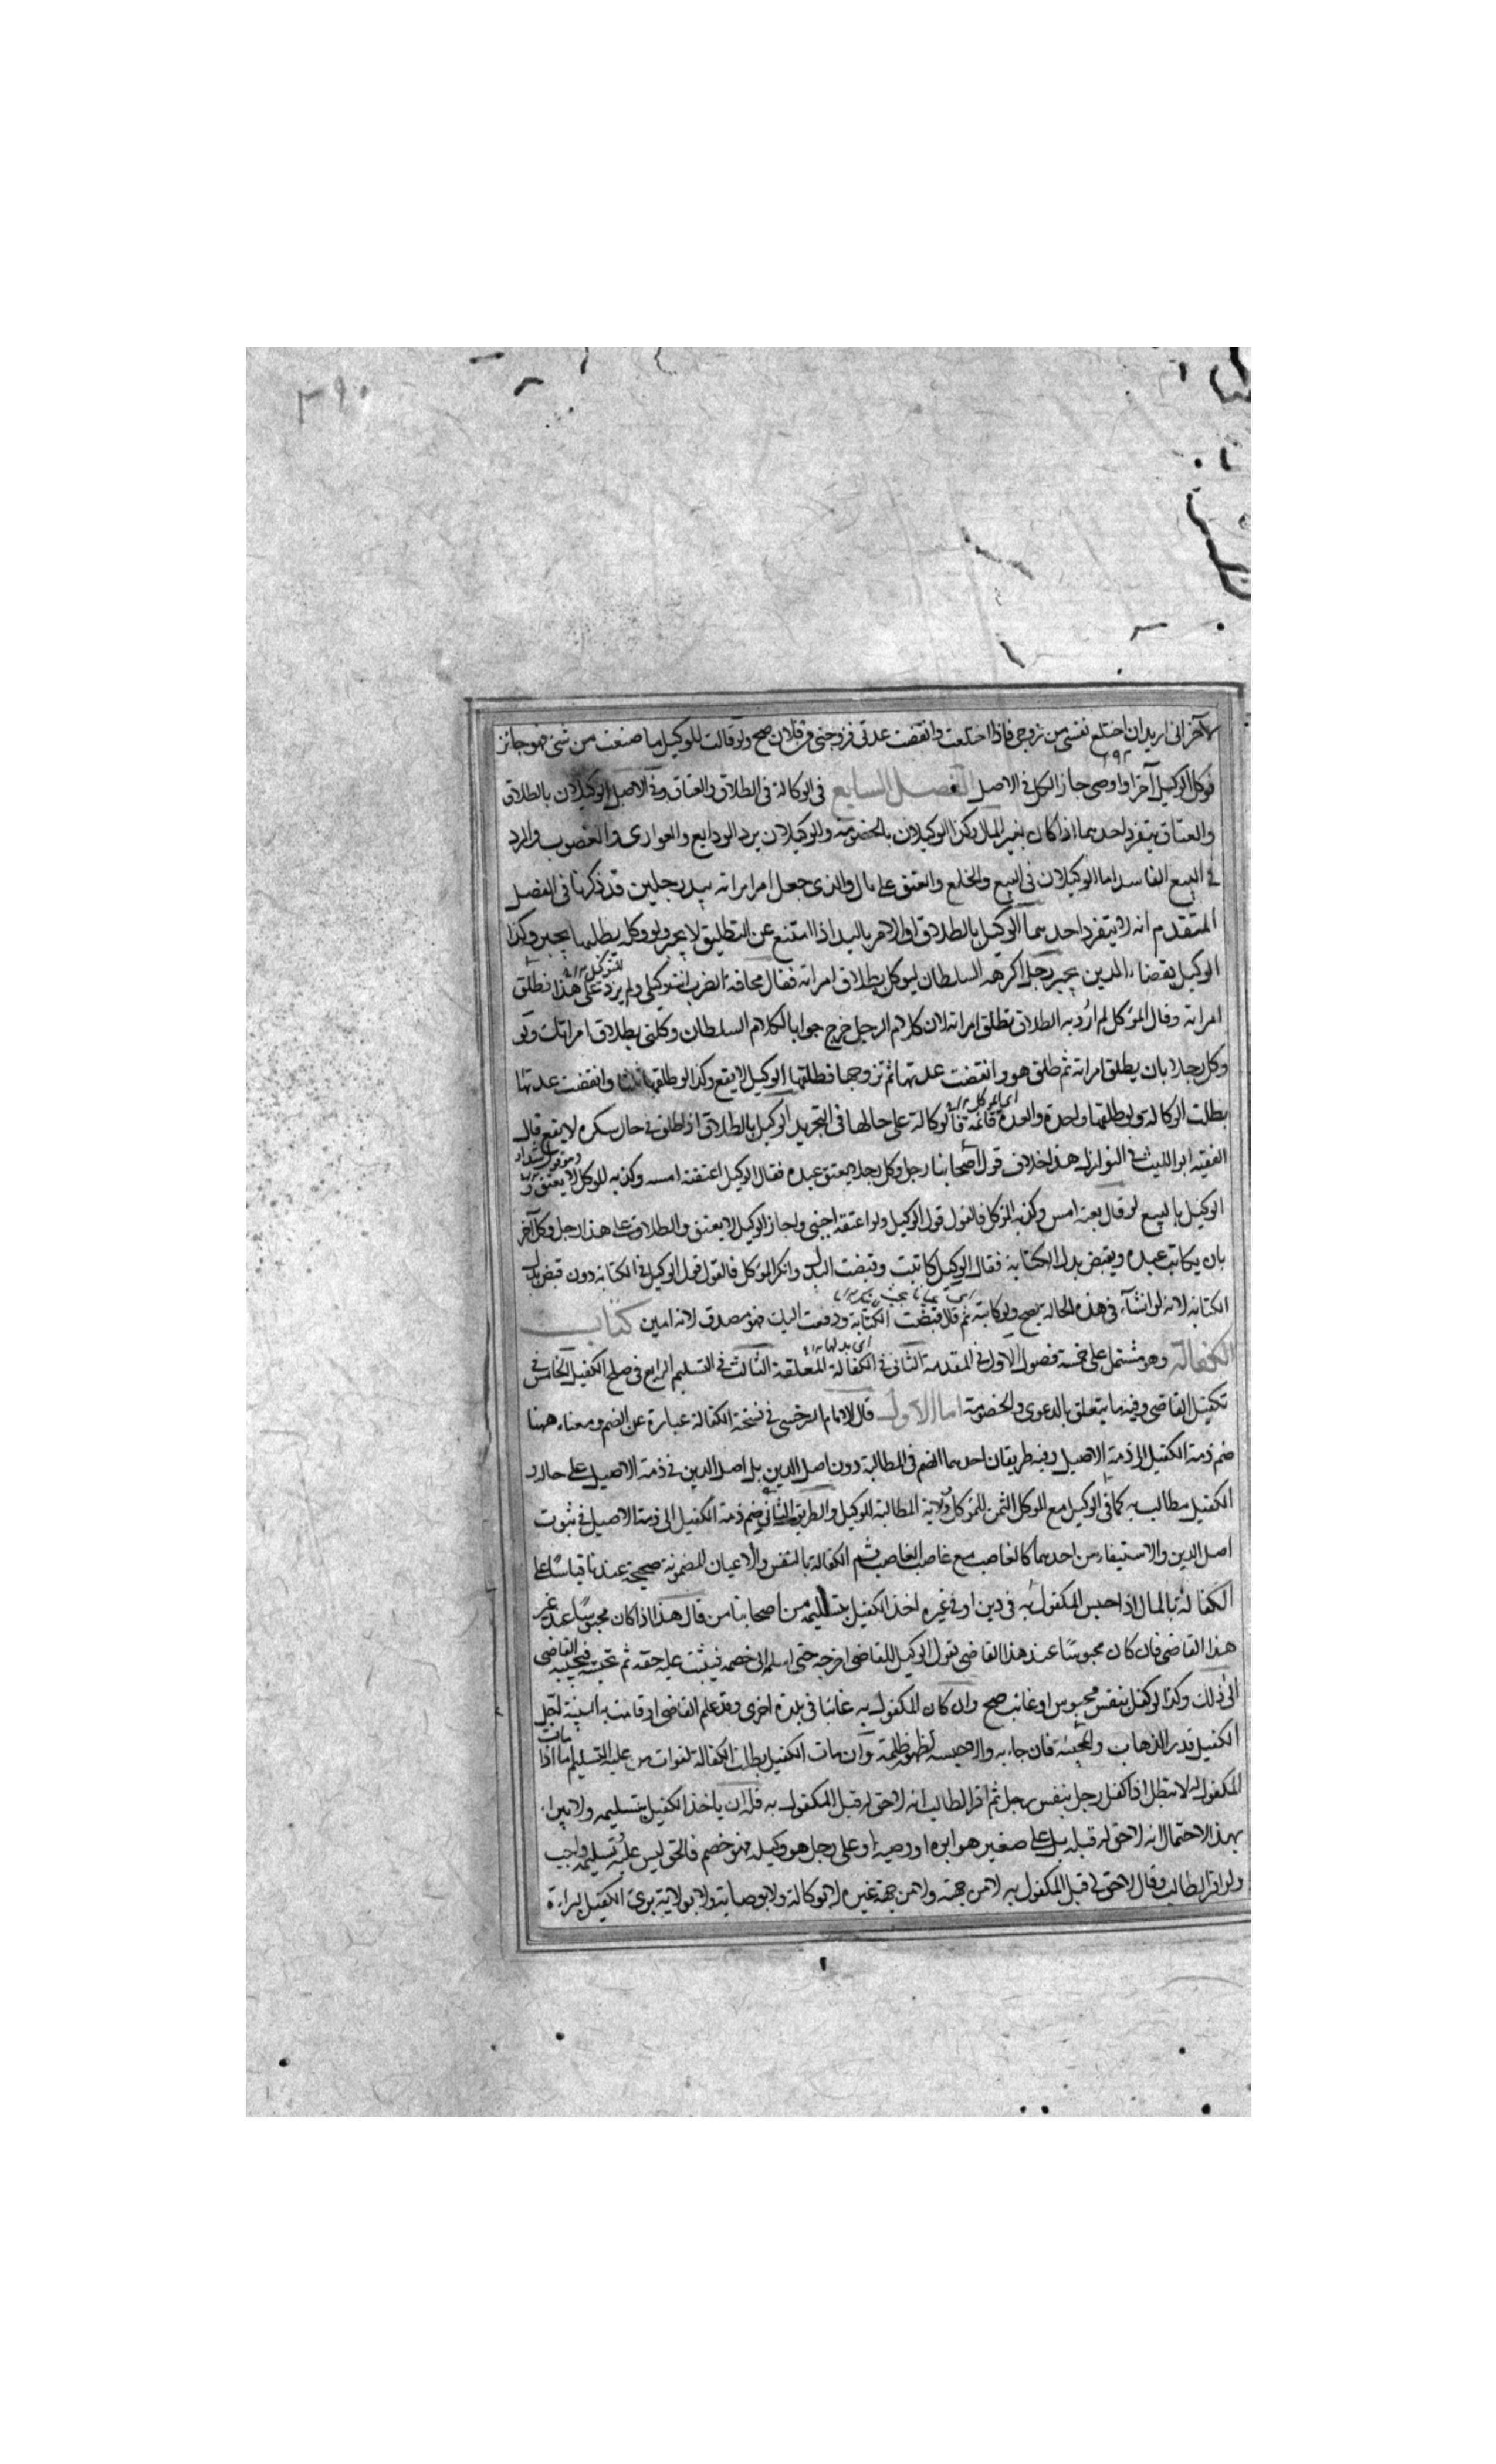 ٢٩٠
لآخر انى اريد ان اختلع نفسى من زوجى فاذا اختلعت وانقضت عدتى فزوجنى من فلان صح ولو قالت للوكيل ما صنعت من شئ فهو جائز
فوكل الوكيل آخر او اوصى جاز الكل فى الاصل الفصل السابع فى الوكالة فى الطلاق والعتاق وفى الاصل الوكيلان بالطلاق
والعتاق يتفرد احدهما اذا كان بغير المال وكذا الوكيلان بالخصومة والوكيلان برد الودايع والعوارى والغصوب والرد
فى البيع الفاسد اما الوكيلان فى البيع والخلع والعتق على مال والذى جعل امر امراته بيد رجلين قد ذكرنا فى الفصل
المتقدم انه لا يتفرد احدهما الوكيل بالطلاق او الامر باليد اذا امتنع عن التطليق لا يجبر ولو وكله بطلبها يجبر وكذا
الوكيل بقضاء الدين يجبر رجل اكرهه السلطان ليوكل بطلاق امراته فقال مخافة الضرب انت وكيلى ولم يزد على هذا فطلق
امراته وقال الموكل لم ارد به الطلاق تطلق امراته لان كلام الرجل خرج جوابا لكلام السلطان وكلنى بطلاق امراتك ولو
وكل رجلا بان يطلق امراته ثم طلق هو وانقضت عدتها ثم تزوجها فطلقها الوكيل لا يقع وكذا لو طلقها ثلثا وانقضت عدتها
بطلت الوكالة ولو طلقها واحدة والعدة قائمة فالوكالة على حالها فى التجريد الوكيل بالطلاق اذا طلق فى حال سكره لا يقع قال
الفقيه ابو الليث فى النوازل هذا خلاف قول اصحابنا رجل وكل رجلا يعتق عبده فقال الوكيل اعتقته امس وكذبه الموكل لا يعتق و
الوكيل بالبيع لو قال بعته امس وكذبه الموكل فالقول قول الوكيل ولو اعتقه اجنبى واجاز الوكيل لا يعتق والطلاق على هذا رجل وكل آخر
بان يكاتب عبده ويقبض بدل الكتابة فقال الوكيل كاتبت وقبضت البدل وانكر الموكل فالقول قول الوكيل فى الكتابة دون قبض بدل
الكتابة لانه لو انشاء فى هذه الحالة يصح ولو كاتبه ثم قال قبضت الكتابة ودفعت اليك فهو مصدق لانه امين كتاب
الكفالة وهو مشتمل على خمسة فصول الاول فى المقدمة الثانى فى الكفالة المعلقة الثالث فى التسليم الرابع فى صلح الكفيل الخامس فى
تكفيل القاضى وفيه ما يتعلق بالدعوى والخصومة اما الاول قال الامام السرخسى فى نسخته الكفالة عبارة عن الضم ومعناه ههنا
ضم ذمة الكفيل الى ذمة الاصيل وفيه طريقان احدهما الضم فى المطالبة دون اصل الدين بل اصل الدين فى ذمة الاصيل على حاله و
الكفيل مطالب به كما فى الوكيل مع الموكل الثمن للموكل وولاية المطالبة للوكيل والطريق الثانى ضم ذمة الكفيل الى ذمة الاصيل فى ثبوت
اصل الدين والاستيفاء من احدهما كالغاصب مع غاصب الغاصب ثم الكفالة بالنفس والاعيان المضمونة صحيحة عندنا قياسًا على
الكفالة بالمال اذا حبس المكفول به فى دين او فى غيره اخذ الكفيل بتسليمه من اصحابنا من قال هذا اذا كان محبوسًا عند غير
هذا القاضى فان كان محبوسًا عند هذا القاضى يقول الوكيل للقاضى اخرجه حتى اسلم الى خصمه فيثبت عليه حقه ثم تحبسه فيجيبه القاضى
الى ذلك وكذا لو كفل بنفس محبوس او غائب صح وان كان المكفول به غائبا فى بلدة اخرى وقد علم القاضى او قامت به البينة اجل
الكفيل قدر الذهاب والمجيئة فان جاء به والا حبسه لظهور ظلمه وان مات الكفيل بطلت الكفالة لفوات من عليه التسليم اما اذا مات
المكفول له لا تبطل اذا كفل رجل بنفس رجل ثم اقر الطالب انه لا حق له قبل المكفول به فله ان ياخذ الكفيل بتسليمه ولا يبراء
بهذا لاحتمال انه لا حق له قبله بل على صغير هو ابوه او وصيه او على رجل هو وكيله فهو خصم فالحق ليس عليه وتسليمه واجب
ولو اقر الطالب وقال لا حق لى قبل المكفول به لا من جهته ولا من جهة غيره لا بوكالة ولا بوصاية ولا بولاية برئ الكفيل براءة